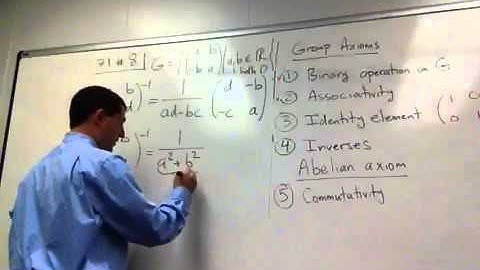 71 # 8 | G = a b | a, b ∈ R
-b a both 0
b )⁻¹ = 1/(ad-bc) ( d -b
d -c a )
b )⁻¹ = 1/(a²+b²)
Group Axioms
① Binary operation on G
② Associativity
③ Identity element ( 1 0
0
④ Inverses
Abelian axiom
⑤ Commutativity